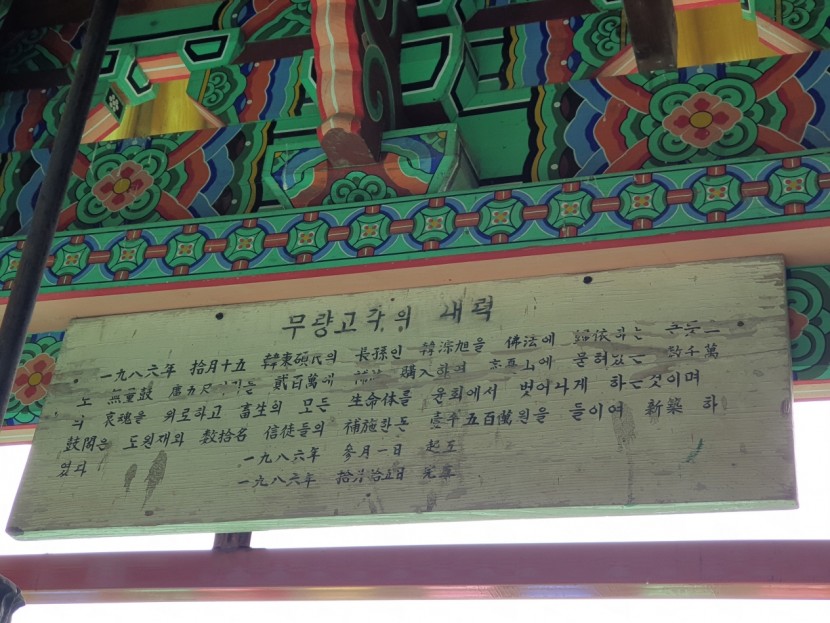 무량고각의 내력
一九八六年 拾月十五 韓東碩氏의 長孫인 韓淙旭을 佛法에 歸依하는 큰뜻
으로 無量鼓 貳百萬에 購入하여 에 묻혀있는 數千萬
의 哀魂을 위로하고 畜生의 모든 生命体를 윤회에서 벗어나게 하는것이며
鼓閣은 도원재와 數拾名 信徒들의 補施한돈 壹千五百萬원을 들이여 新築 하
였다
一九八六年 參月一日 起工
一九八六年 拾月拾五日